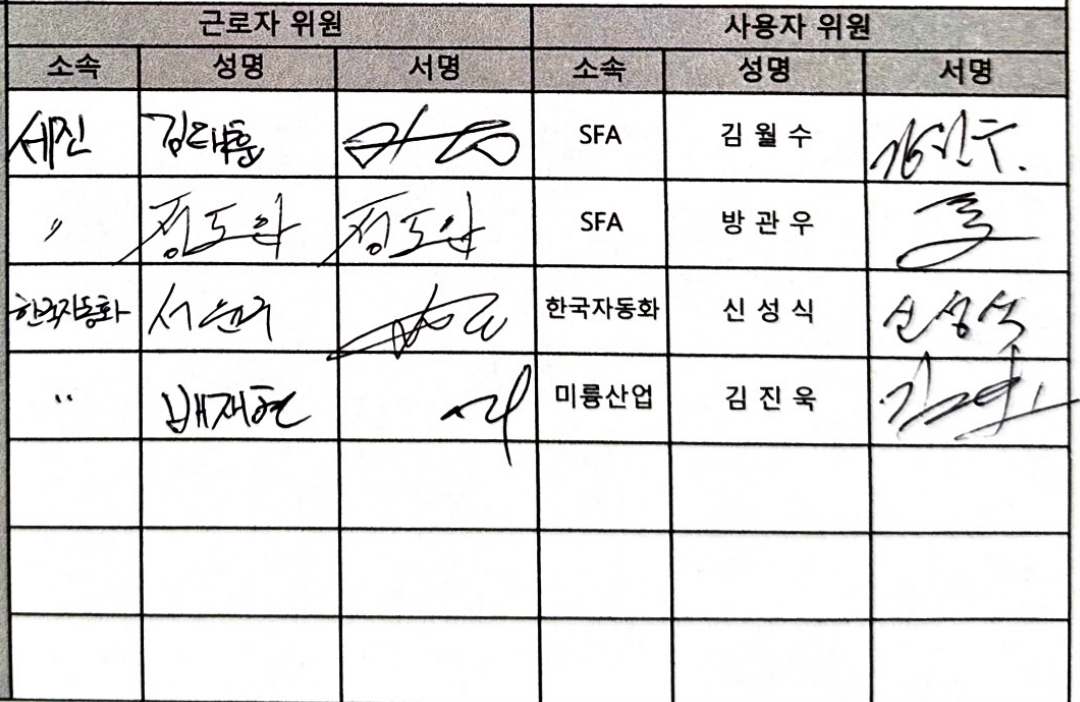 근로자 위원 사용자 위원
소속 성명 서명 소속 성명 서명
세진 김태훈 SFA 김월수
〃 정도안 정도안 SFA 방관우
한국자동화 서순귀 한국자동화 신성식 신성식
〃 배재현 미륭산업 김진욱